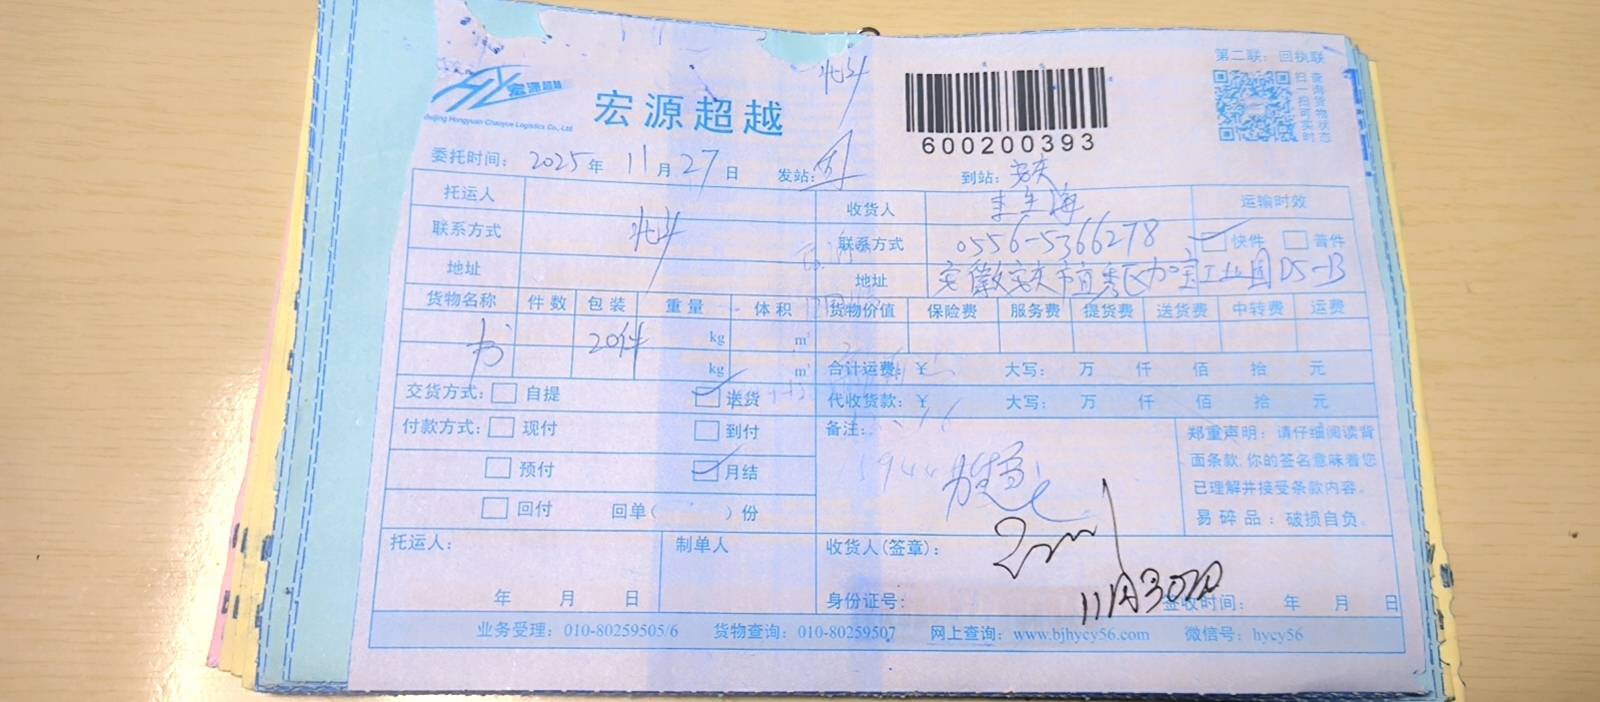 第二联：回执联
宏源超越
Beijing Hongyuan Chaoyue Logistics Co., Ltd.
宏源超越
600200393
扫一扫可实时
查询货物状态
委托时间： 2025年 11月 27日 发站： 到站：安庆
托运人 收货人 运输时效
联系方式 联系方式 0556-5366278 快件 普件
地址 地址 安徽安庆市宜秀区 工业园D5-B
货物名称 件数 包装 重量 体积 货物价值 保险费 服务费 提货费 送货费 中转费 运费
书 20件 kg m³
kg m³ 合计运费：¥ 大写： 万 仟 佰 拾 元
交货方式： 自提 送货 代收货款：¥ 大写： 万 仟 佰 拾 元
付款方式： 现付 到付 备注：
预付 月结
回付 回单（ ）份
郑重声明：请仔细阅读背
面条款，你的签名意味着您
已理解并接受条款内容。
易碎品：破损自负。
托运人： 制单人 收货人(签章)：
年 月 日 身份证号： 11月30日 签收时间： 年 月 日
业务受理：010-80259505/6 货物查询：010-80259507 网上查询：www.bjhycy56.com 微信号：hycy56